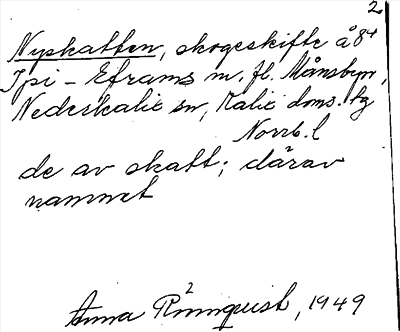 2
Nyskatten, skogsskifte å 8⁴
Ipi - Eframs m. fl. Månsbyn,
Nederkalix sn, Kalix doms. tg
Norrb. l
de av skatt; därav
namnet
2
Anna Rönnquist, 1949